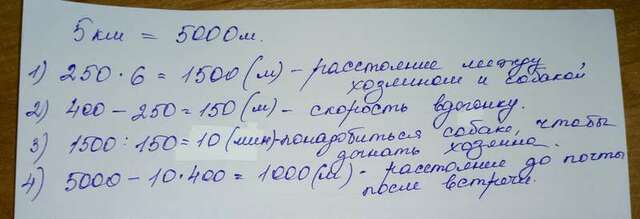 5 км = 5000 м.
1) 250 · 6 = 1500 (м) – расстояние между
хозяином и собакой
2) 400 – 250 = 150 (м) – скорость вдогонку.
3) 1500 : 150 = 10 (мин) – понадобиться собаке, чтобы
догнать хозяина.
4) 5000 – 10 · 400 = 1000 (м) – расстояние до почты
после встречи.